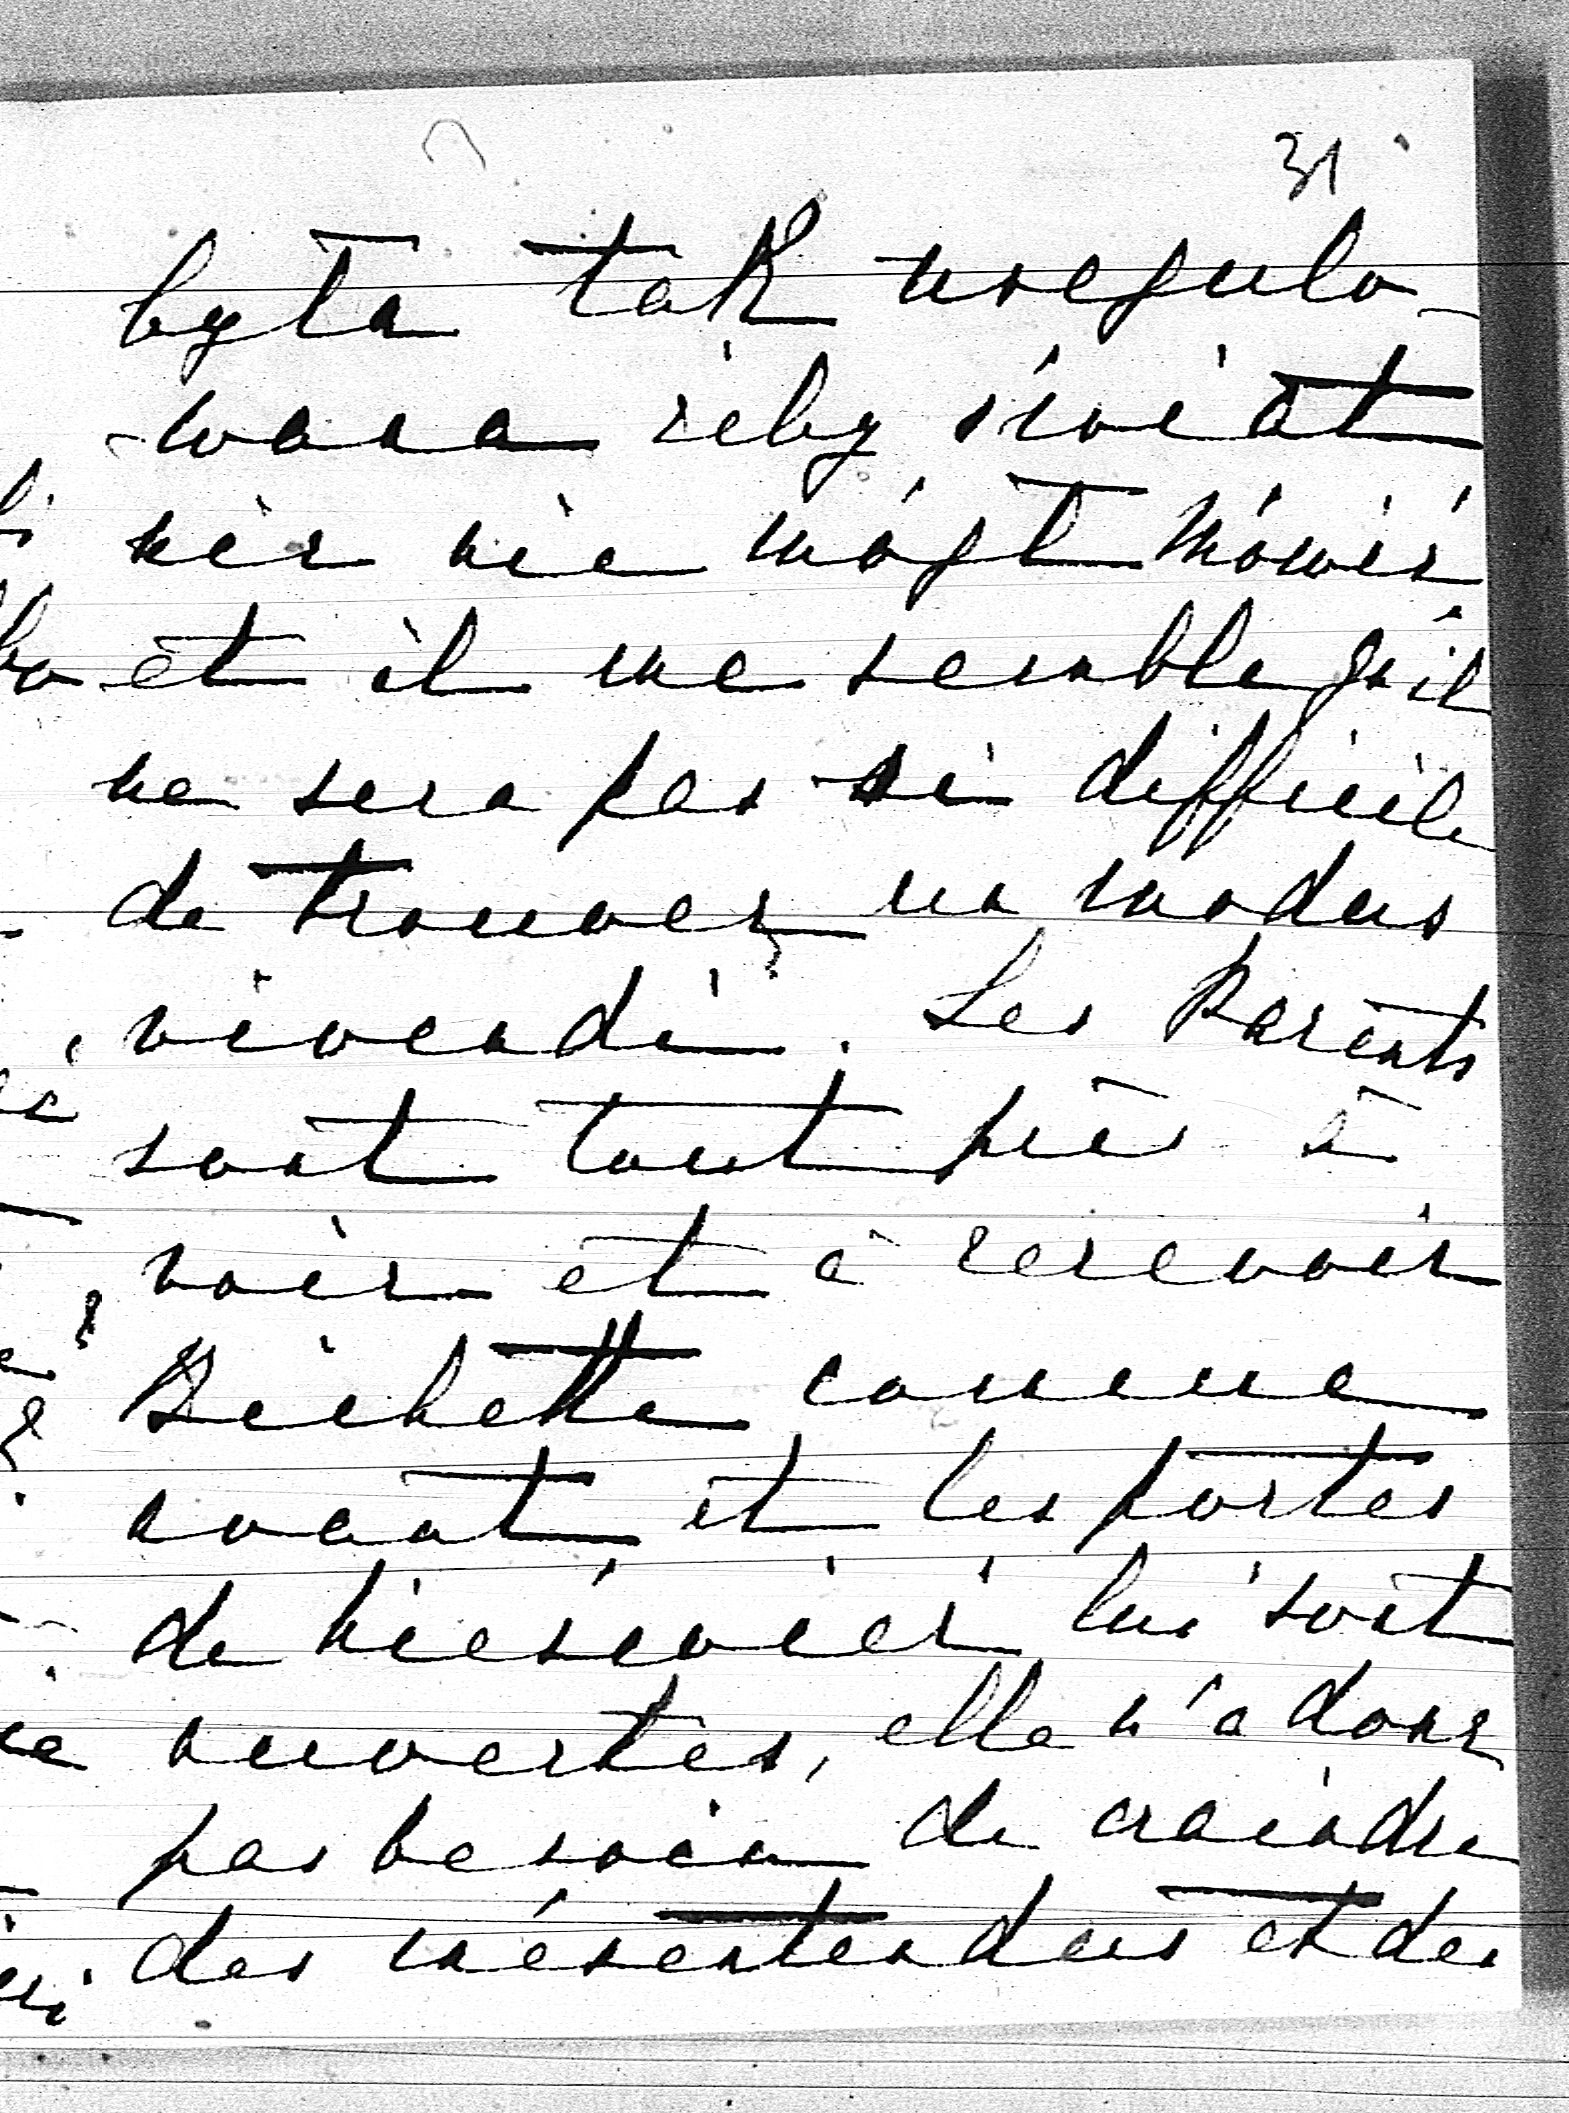 31
była tak uregulo-
wana żeby świat
nic nie mógł mówić
et il me semble qu'il
ne sera pas si difficile
de trouver un modus
vivendi. Les Parents
sont tout près à
voir et à recevoir
Bichette comme
avant, et les portes
de Nieśwież lui sont
ouvertes, elle n'a donc
pas besoin de craindre
des mésentendus et des